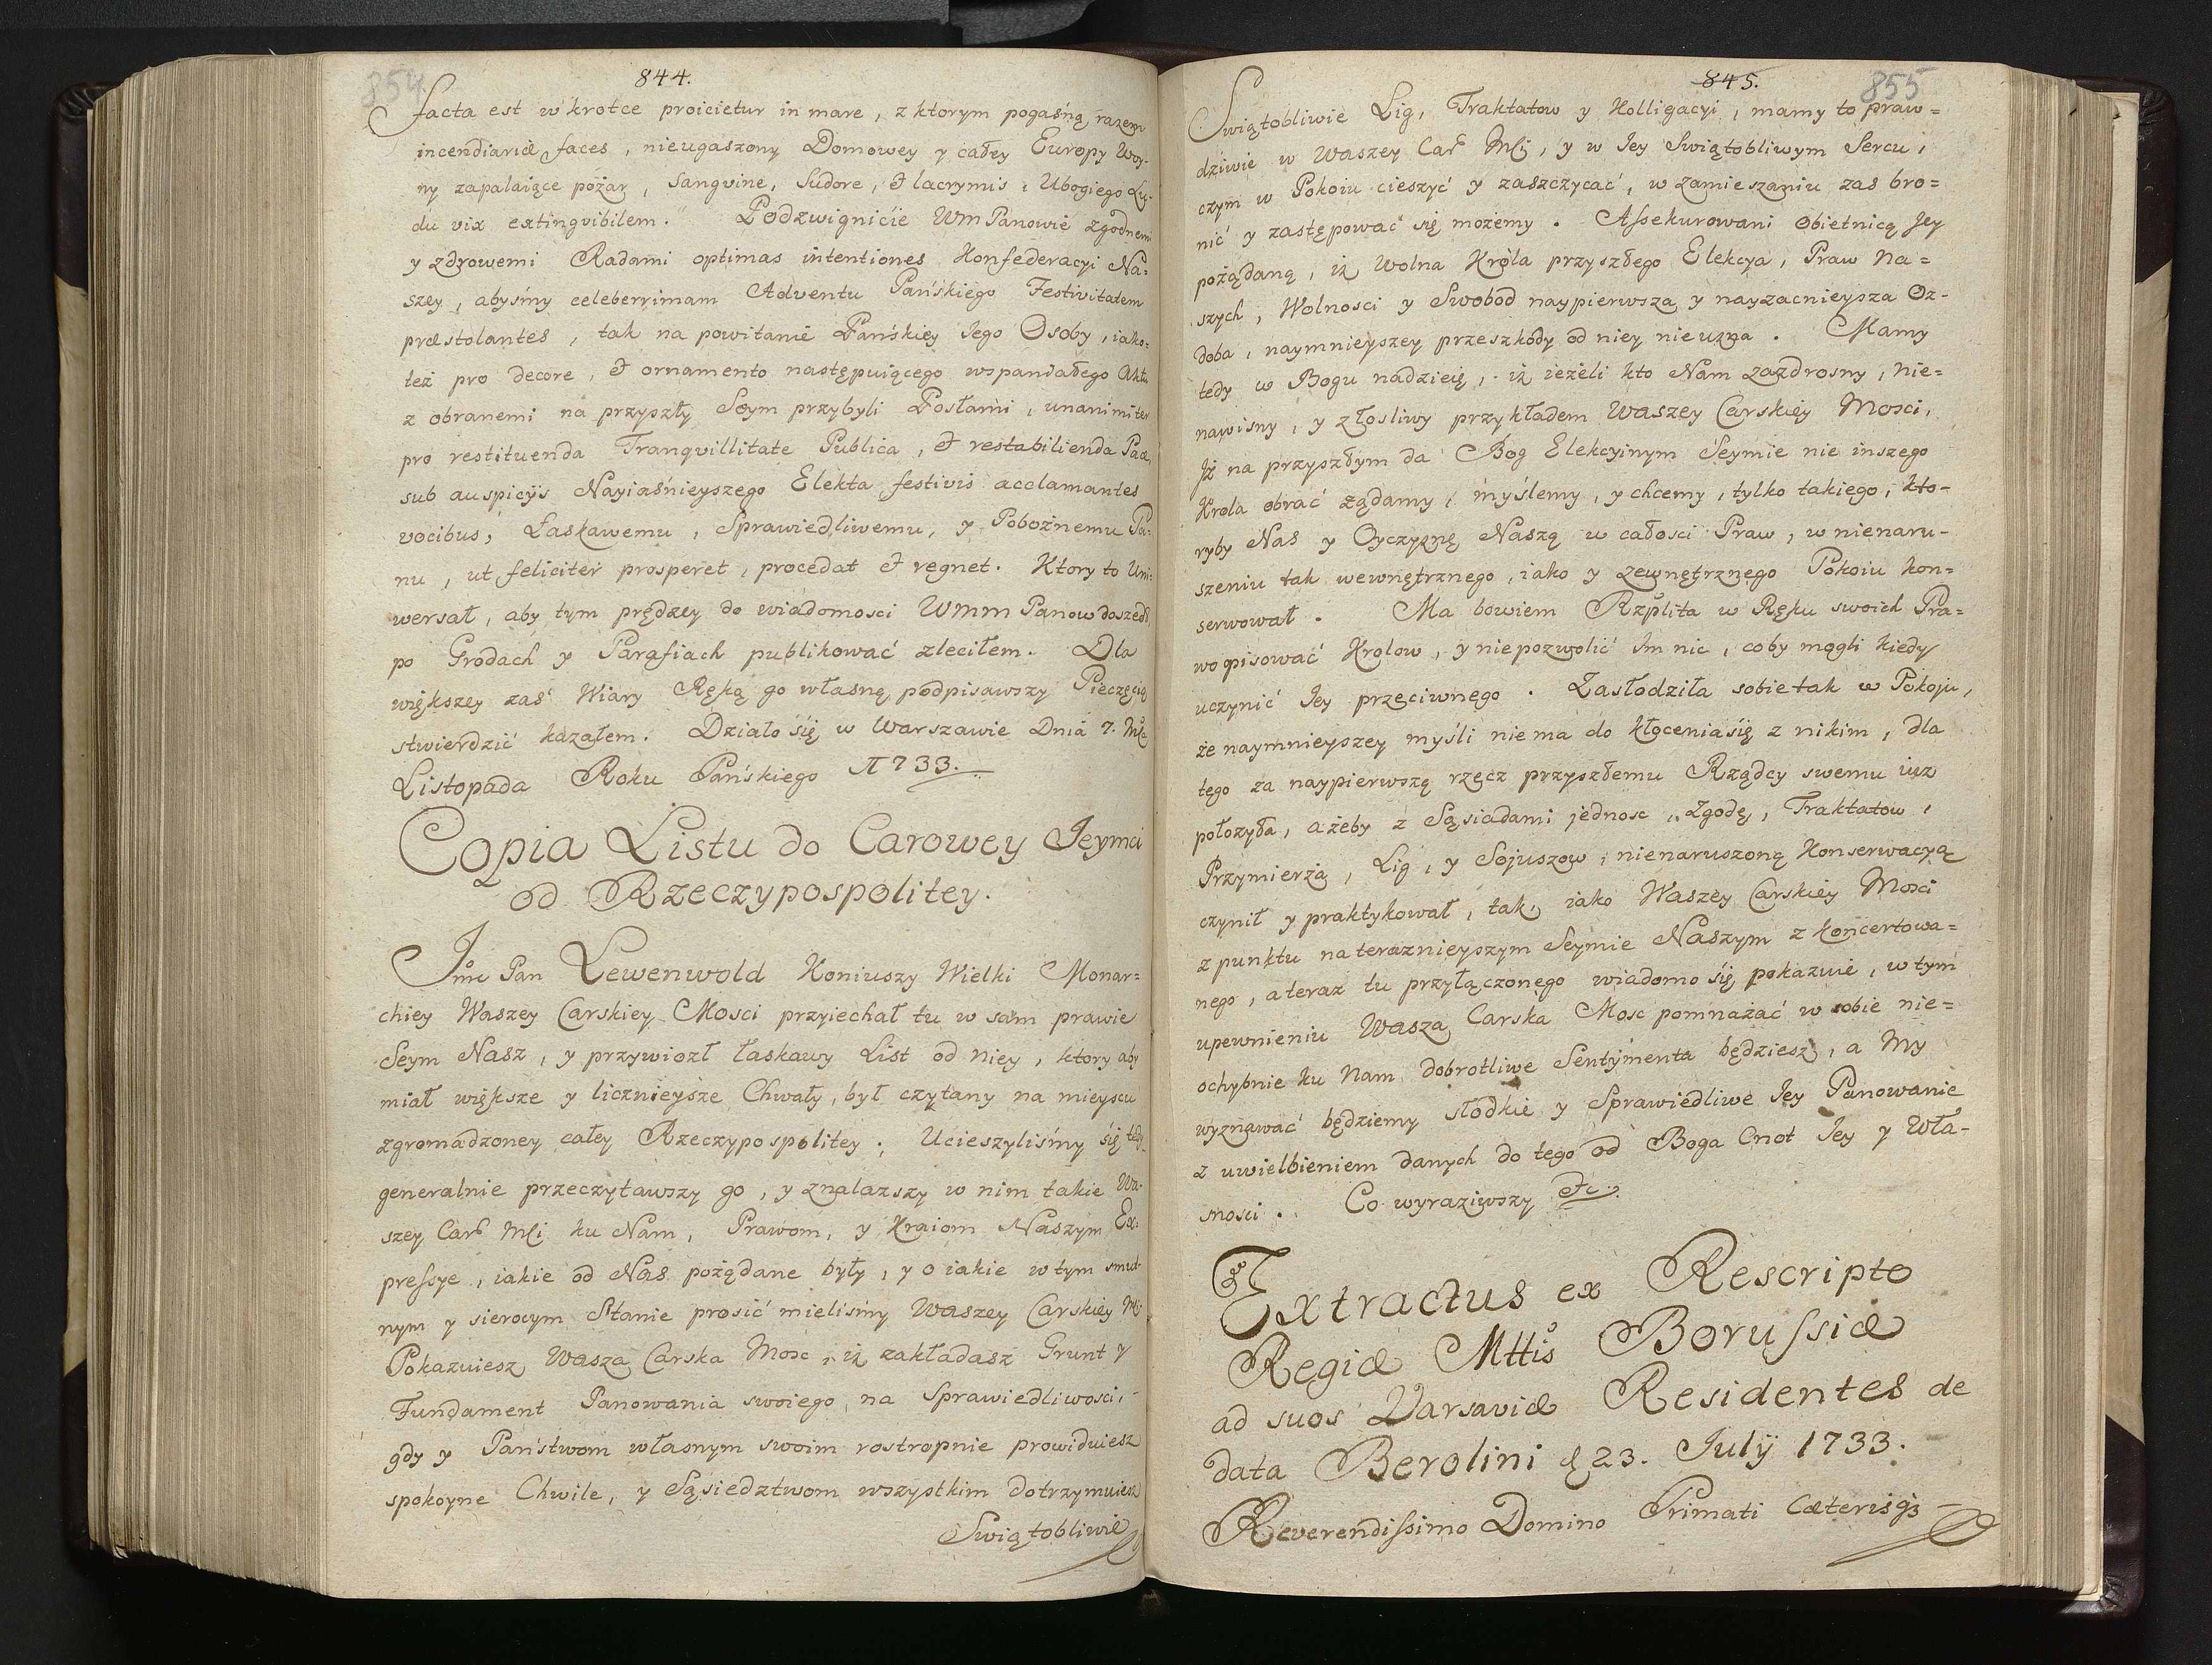 854
844.
facta est w krotce proicietur in mare, z ktorym pogaśną razem
incendiariæ faces, nieugaszony Domowey y całey Europy Woy-
ny zapalaiące pożar, Sangvine, Sudore, & lacrymis, Ubogiego Lu-
du vix extingvibilem. Podzwignicie WmPanowie zgodnemi
y zdrowemi Radami optimas intentiones Konfederacyi Na=
szey, abyśmy celeberrimam Adventu Pańskiego Festivitatem
præstolantes, tak na powitanie Pańskiey Jego Osoby, iako=
też pro decore, & ornamento następuiącego wspaniałego Aktu
z obranemi na przyszły Seym przybyli Posłami, unanimiter
pro restituenda Tranqvillitate Publica, & restabilienda Pace,
sub auspicijs Nayiaśnieyszego Elekta festivis acclamantes
vocibus, Łaskawemu, Sprawiedliwemu, y Pobożnemu Pa=
nu, ut feliciter prosperet, procedat & regnet. Ktory to Uni=
wersał, aby tym prędzey do wiadomosci Wmm Panow doszedł,
po Grodach y Parafiach publikować zleciłem. Dla
większey zaś Wiary Ręką go własną podpisawszy Pieczęcią
stwierdzić kazałem. Działo się w Warszawie Dnia 7. Mca
Listopada Roku Pańskiego 1733.
Copia Listu do Carowey Jeymci
od Rzeczypospolitey.
Jmc Pan Lewenwold Koniuszy Wielki Monar=
chiey Waszey Carskiey Mosci przyiechał tu w sam prawie
Seym Nasz, y przywiozł łaskawy List od niey, ktory aby
miał większe y licznieysze Chwały, był czytany na mieyscu
zgromadzoney całey Rzeczypospolitey. Ucieszyliśmy się tedy
generalnie przeczytawszy go, y znalazszy w nim takie Wa-
szey Car Mści ku Nam, Prawom, y Kraiom Naszym Ex=
pressye, iakie od Nas pożądane były, y o iakie w tym smut-
nym y sierocym Stanie prosić mieliśmy Waszey Carskiey Mści
Pokazuiesz Wasza Carska Mosc, iż zakładasz Grunt y
Fundament Panowania swoiego, na Sprawiedliwosci,
gdy y Państwom własnym swoim rostropnie prowiduiesz
spokoyne Chwile, y Sąsiedztwom wszystkim dotrzymuiesz
Swiątobliwie
845.
855
Swiątobliwie Lig, Traktatow y Kolligacyi, mamy to praw=
dziwie w Waszey Car Mści, y w Jey Swiątobliwym Sercu,
czym w Pokoiu cieszyć y zaszczycać, w zamieszaniu zas bro=
nić y zastępować się możemy. Assekurowani Obietnicą Jey
pożądaną, iż Wolna Króla przyszłego Elekcya, Praw Na=
szych, Wolnosci y Swobod naypierwsza y nayzacnieysza Oz-
doba, naymnieyszey przeszkody od niey nie uzna. Mamy
tedy w Bogu nadzieię, iż ieżeli kto Nam zazdrosny, nie=
nawisny, y złosliwy przykładem Waszey Carskiey Mosci,
Jż na przyszłym da Bog Elekcyinym Seymie nie inszego
Krola obrać żądamy, myślemy, y chcemy, tylko takiego, kto-
ryby Nas y Oyczyznę Naszą w całosci Praw, w nienaru-
szeniu tak wewnętrznego, iako y zewnętrznego Pokoiu kon=
serwował. Ma bowiem Rzplita w Ręku swoich Pra=
wo pisować Krolow, y nie pozwolić Jm nic, coby mogli kiedy
uczynić Jey przeciwnego. Zasłodziła sobie tak w Pokoju,
że naymnieyszey myśli nie ma do kłocenia się z nikim, dla
tego za naypierwszą rzecz przyszłemu Rządcy swemu iuz
połozyła, ażeby z Sąsiadami jednosc, Zgodę, Traktatow,
Przymierza, Lig, y Sojuszow, nienaruszoną Konserwacyą
czynił y praktykował, tak, iako Waszey Carskiey Mosci
z punktu na teraznieyszym Seymie Naszym zkoncertowa=
nego, a teraz tu przyłączonego wiadomo się pokazuie, w tym
upewnieniu Wasza Carska Mosc pomnażać w sobie nie=
ochybnie ku Nam dobrotliwe Sentymenta będziesz, a My
wyznawać będziemy słodkie y Sprawiedliwe Jey Panowanie
z uwielbieniem danych do tego od Boga Cnot Jey y Wła-
snosci. Co wyraziwszy &c.
Extractus ex Rescripto
Regiæ Mttis Borussiæ
ad suos Varsaviæ Residentes de
data Berolini d 23. Julij 1733.
Reverendissimo Domino Primati Cæterisq3